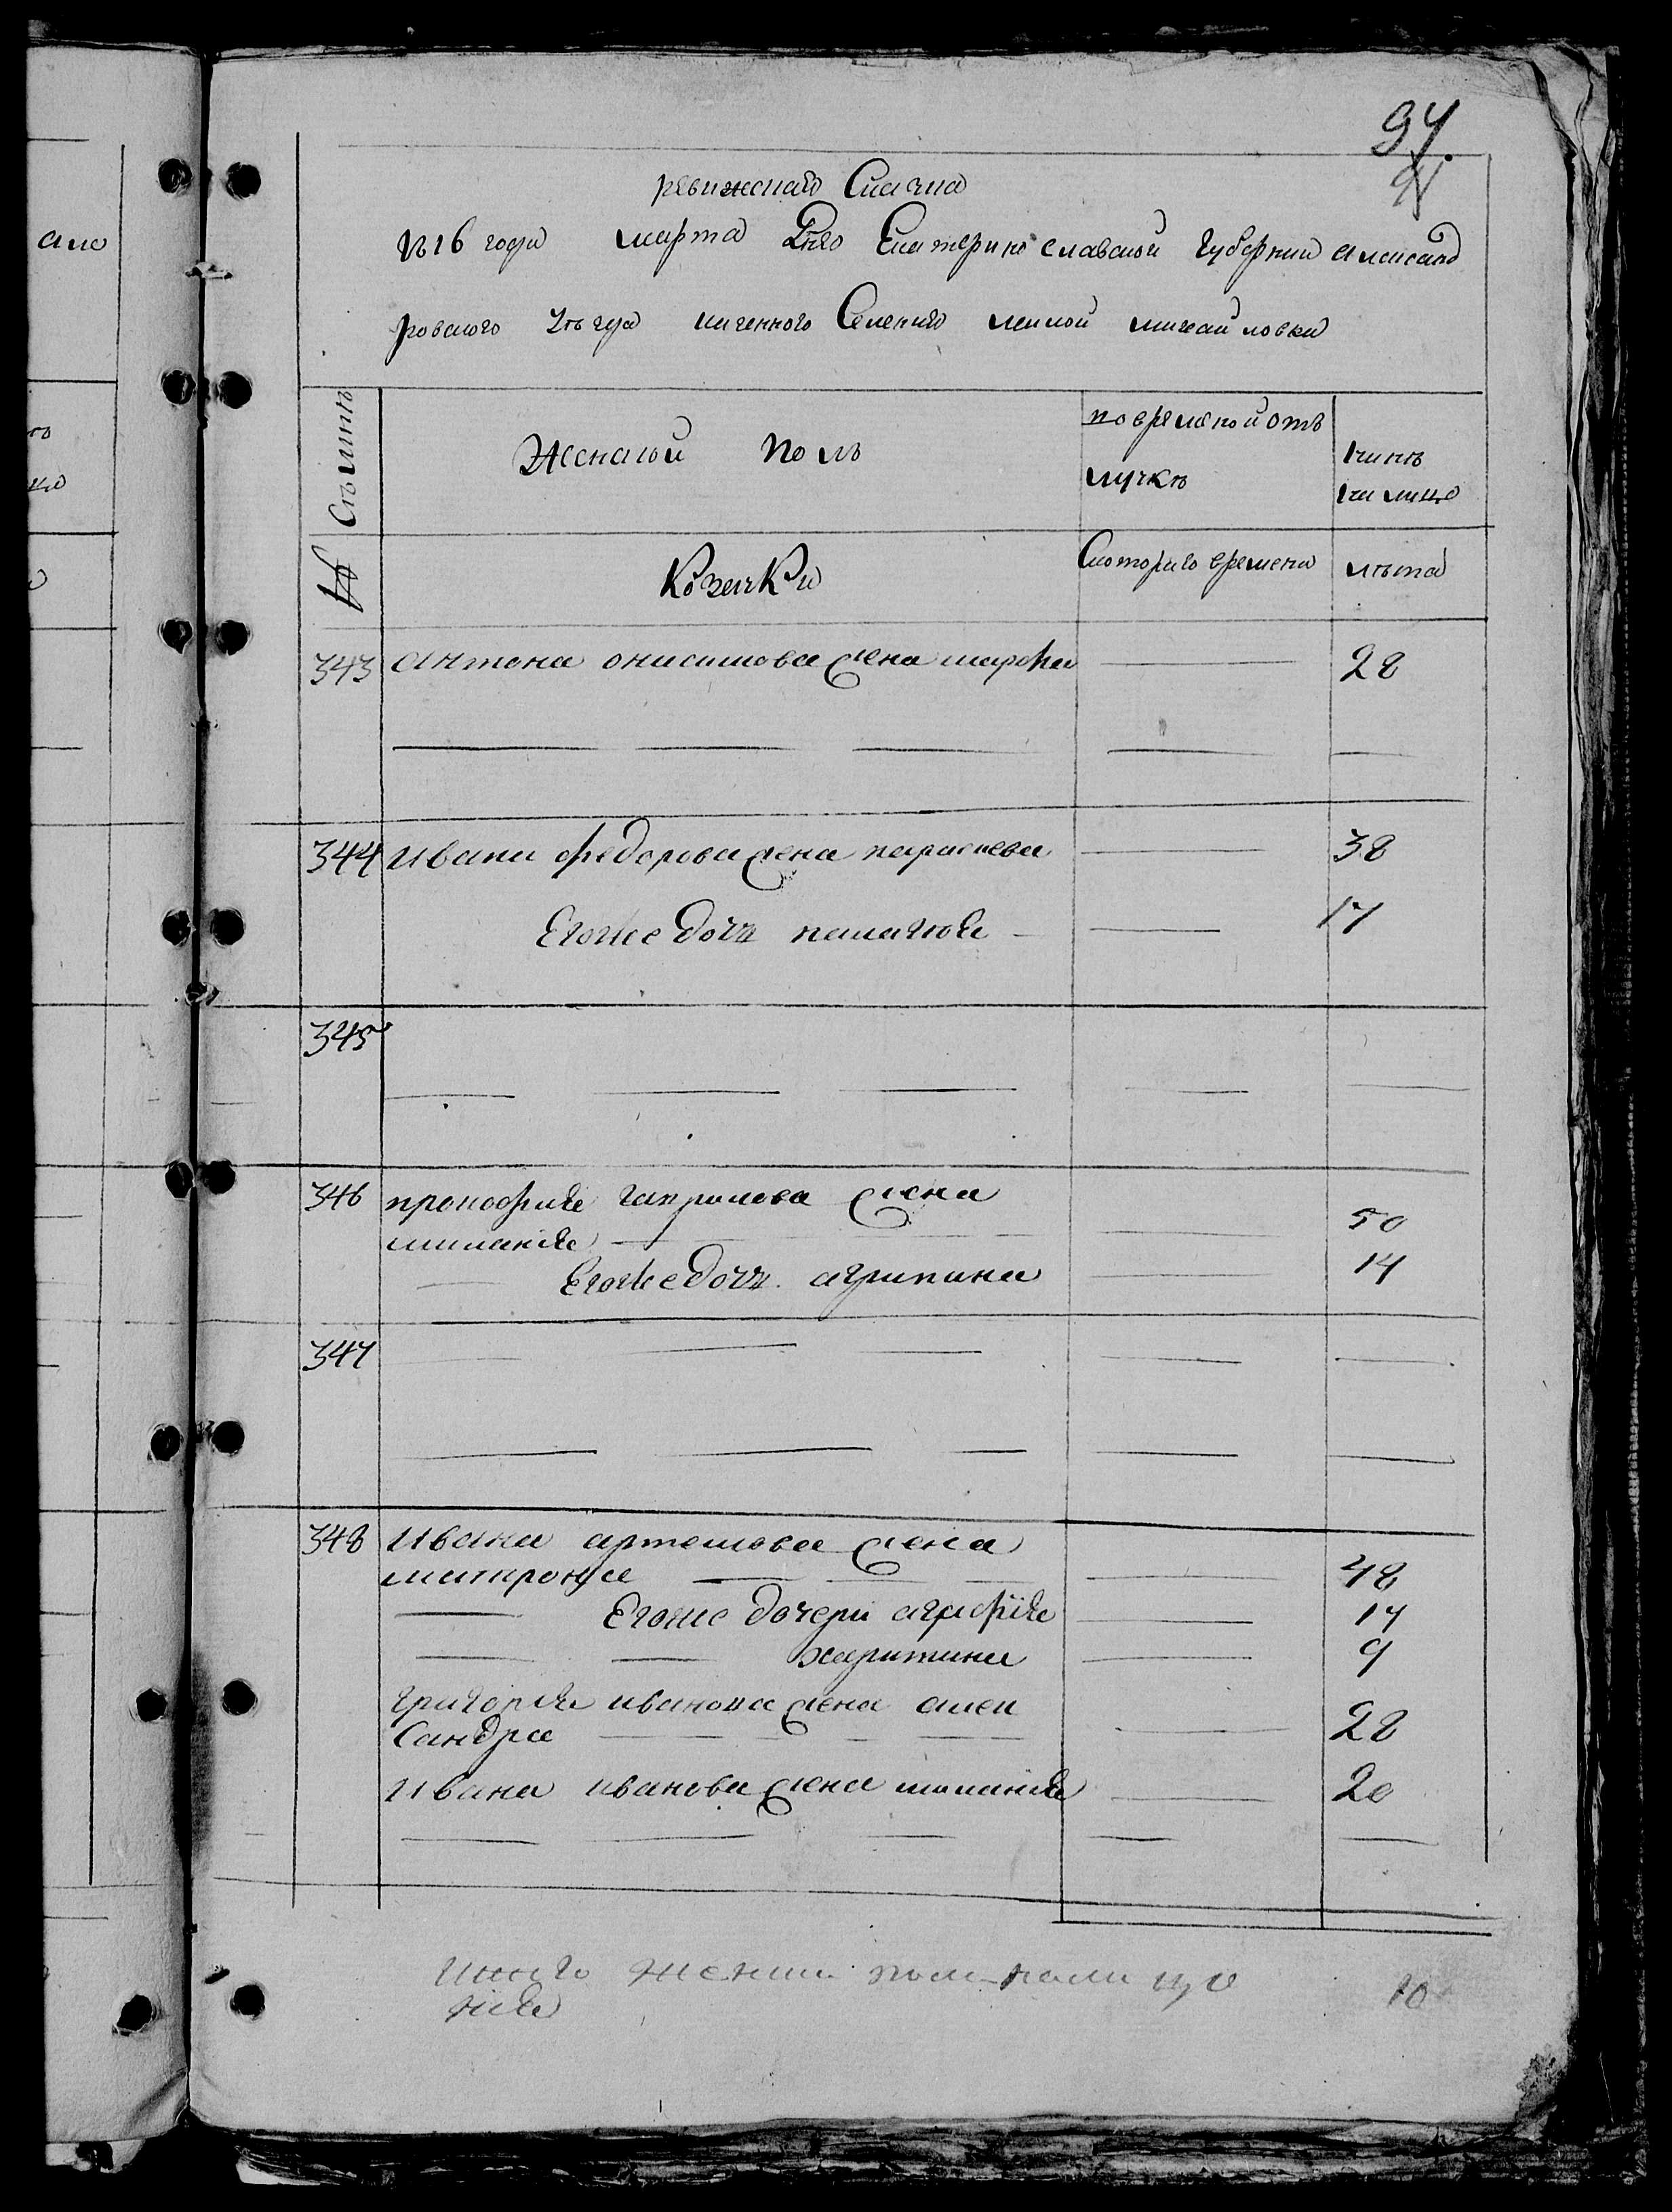 94.
ревижская Скаска
1816 года марта Дня Екатеринославской Губернии александ
ровского уезда казенного Селения малой михайловки
Семьи
Женской полъ
во временной отъ
лучкѣ
нынѣ
на лицо
№
Козачки
Скоторого времени
лѣта
343 Антона онисимова жена марфа 28
344 Ивана федорова жена параскева 38
Егоже дочь пелагия 17
345
346 прокофия гаврилова жена
милания 50
Егоже дочь агрипина 14
347
348 Ивана артемова жена
матрона 48
Егоже дочери агафия 17
харитина 9
григория иванова жена алек
Сандра 28
Ивана иванова жена милания 20
Итого женска пола наличо
ния 10